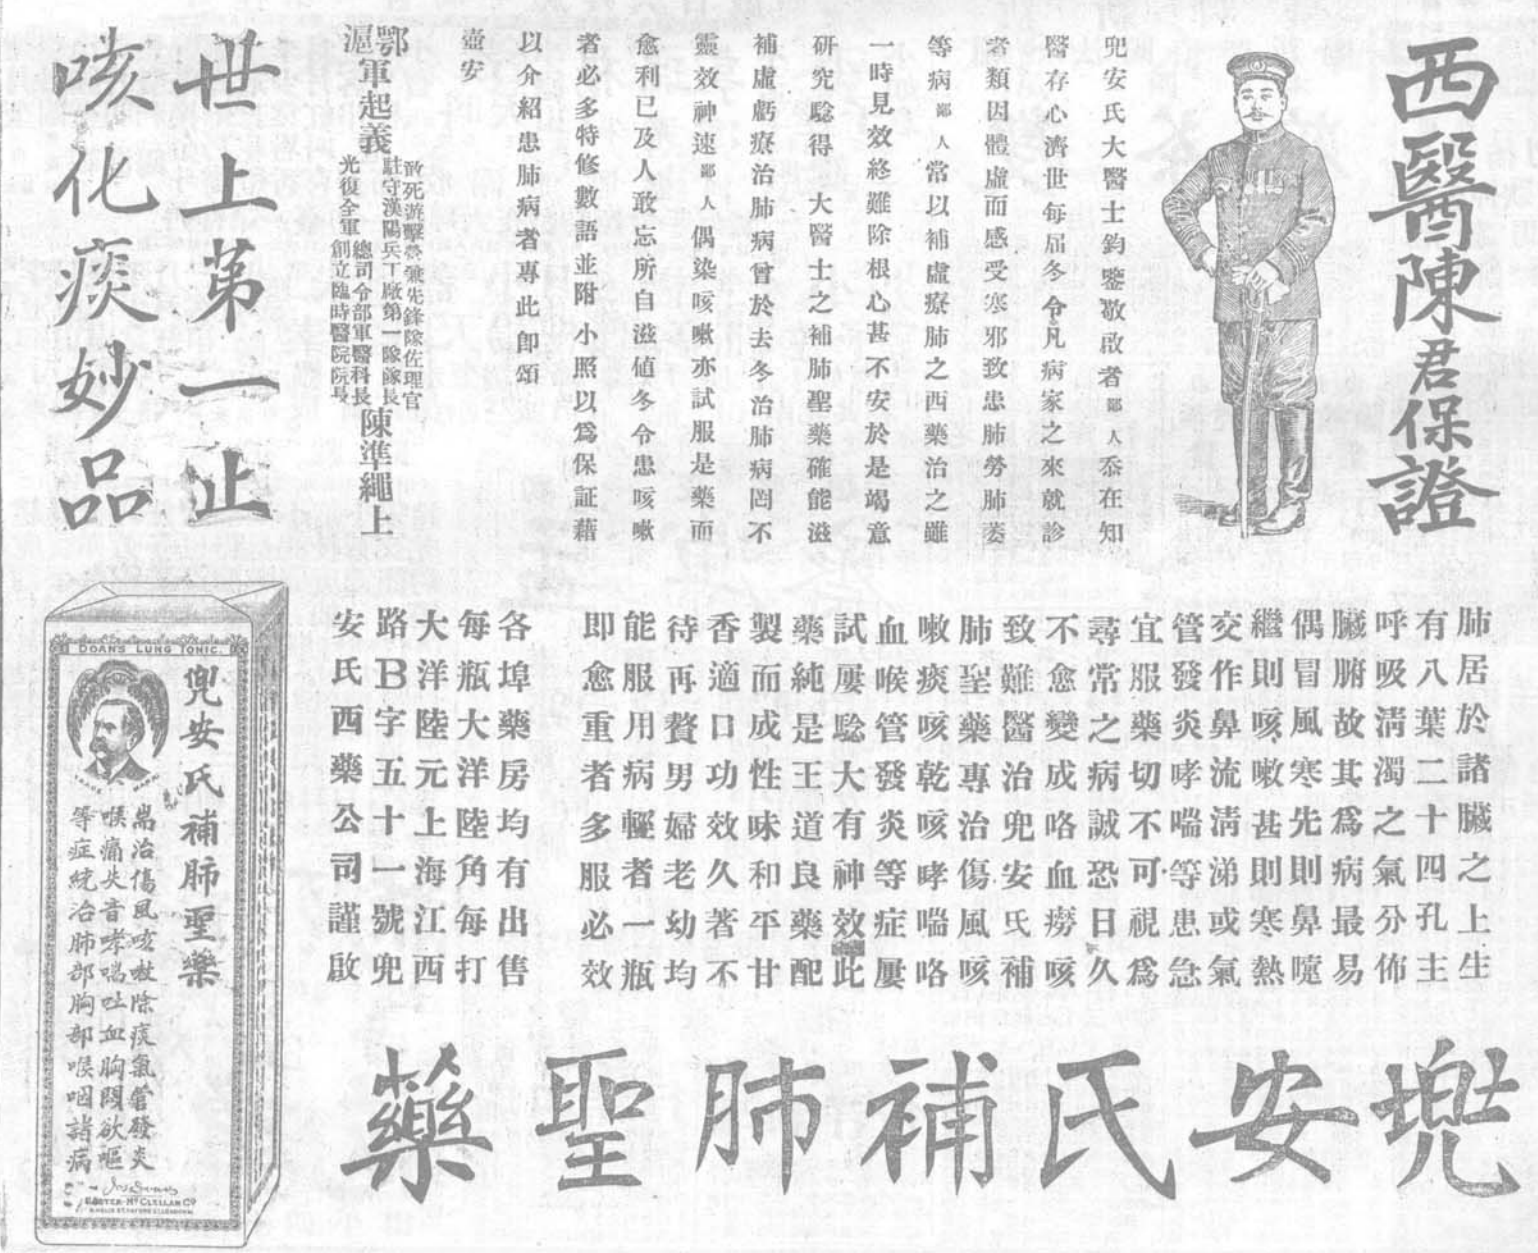 西醫陳君保證
兜安氏大醫士鈞鑒敬啟者鄙人忝在知
醫存心濟世每屆冬令凡病家之來就診
者類因體虛而感受寒邪致患肺勞肺萎
等病鄙人常以補虛療肺之西藥治之雖
一時見效終難除根心甚不安於是竭意
研究騐得大醫士之補肺聖藥確能滋
補虛虧療治肺病曾於去冬治肺病罔不
靈效神速鄙人偶染咳嗽亦試服是藥而
愈利已及人敢忘所自滋値冬令患咳嗽
者必多特修數語並附小照以爲保証藉
以介紹患肺病者專此卽頌
壺安
鄂
滬軍起義
敢死遊擊營兼先鋒隊佐理官
駐守漢陽兵工廠第一隊隊長
總司令部軍醫科長
光復全軍創立臨時醫院院長
陳準繩上
世上第一止
咳化痰妙品
肺居於諸臟之上生
有八葉二十四孔主
呼吸淸濁之氣分佈
臟腑故其爲病最易
偶冒風寒先則鼻嚏
繼則咳嗽甚則寒熱
交作鼻流淸涕或氣
管發炎哮喘等患急
宜服藥切不可視爲
尋常之病誠恐日久
不愈變成咯血癆咳
致難醫治兜安氏補
肺聖藥專治傷風咳
嗽痰咳乾咳哮喘咯
血喉管發炎等症屢
試屢騐大有神效此
藥純是王道良藥配
製而成性味和平甘
香適口功效久著不
待再贅男婦老幼均
能服用病輕者一瓶
即愈重者多服必效
各埠藥房均有出售
每瓶大洋陸角每打
大洋陸元上海江西
路B字五十一號兜
安氏西藥公司謹啟
DOANS LUNG TONIC.
兜安氏補肺聖藥
耑治傷風咳嗽除痰氣管發炎
喉痛失音哮喘吐血胸悶欲嘔
等症統治肺部胸部喉咽諸病
FOSTER-McCLELLAN Co
兜安氏補肺聖藥